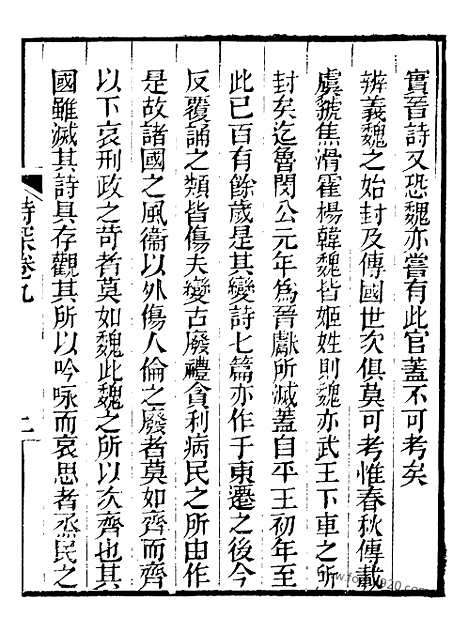 實晉詩又恐魏亦嘗有此官蓋不可考矣
辨義魏之始封及傳國世次俱莫可考惟春秋傳載
虞虢焦滑霍楊韓魏皆姬姓則魏亦武王下車之所
封矣迄魯閔公元年為晉獻所滅蓋自平王初年至
此已百有餘歲是其變詩七篇亦作于東遷之後今
反覆誦之類皆傷夫變古廢禮貪利病民之所由作
是故諸國之風衞以外傷人倫之廢者莫如齊而齊
以下哀刑政之苛者莫如魏此魏之所以次齊也其
國雖滅其詩具存觀其所以吟咏而哀思者烝民之
詩 卷九
二